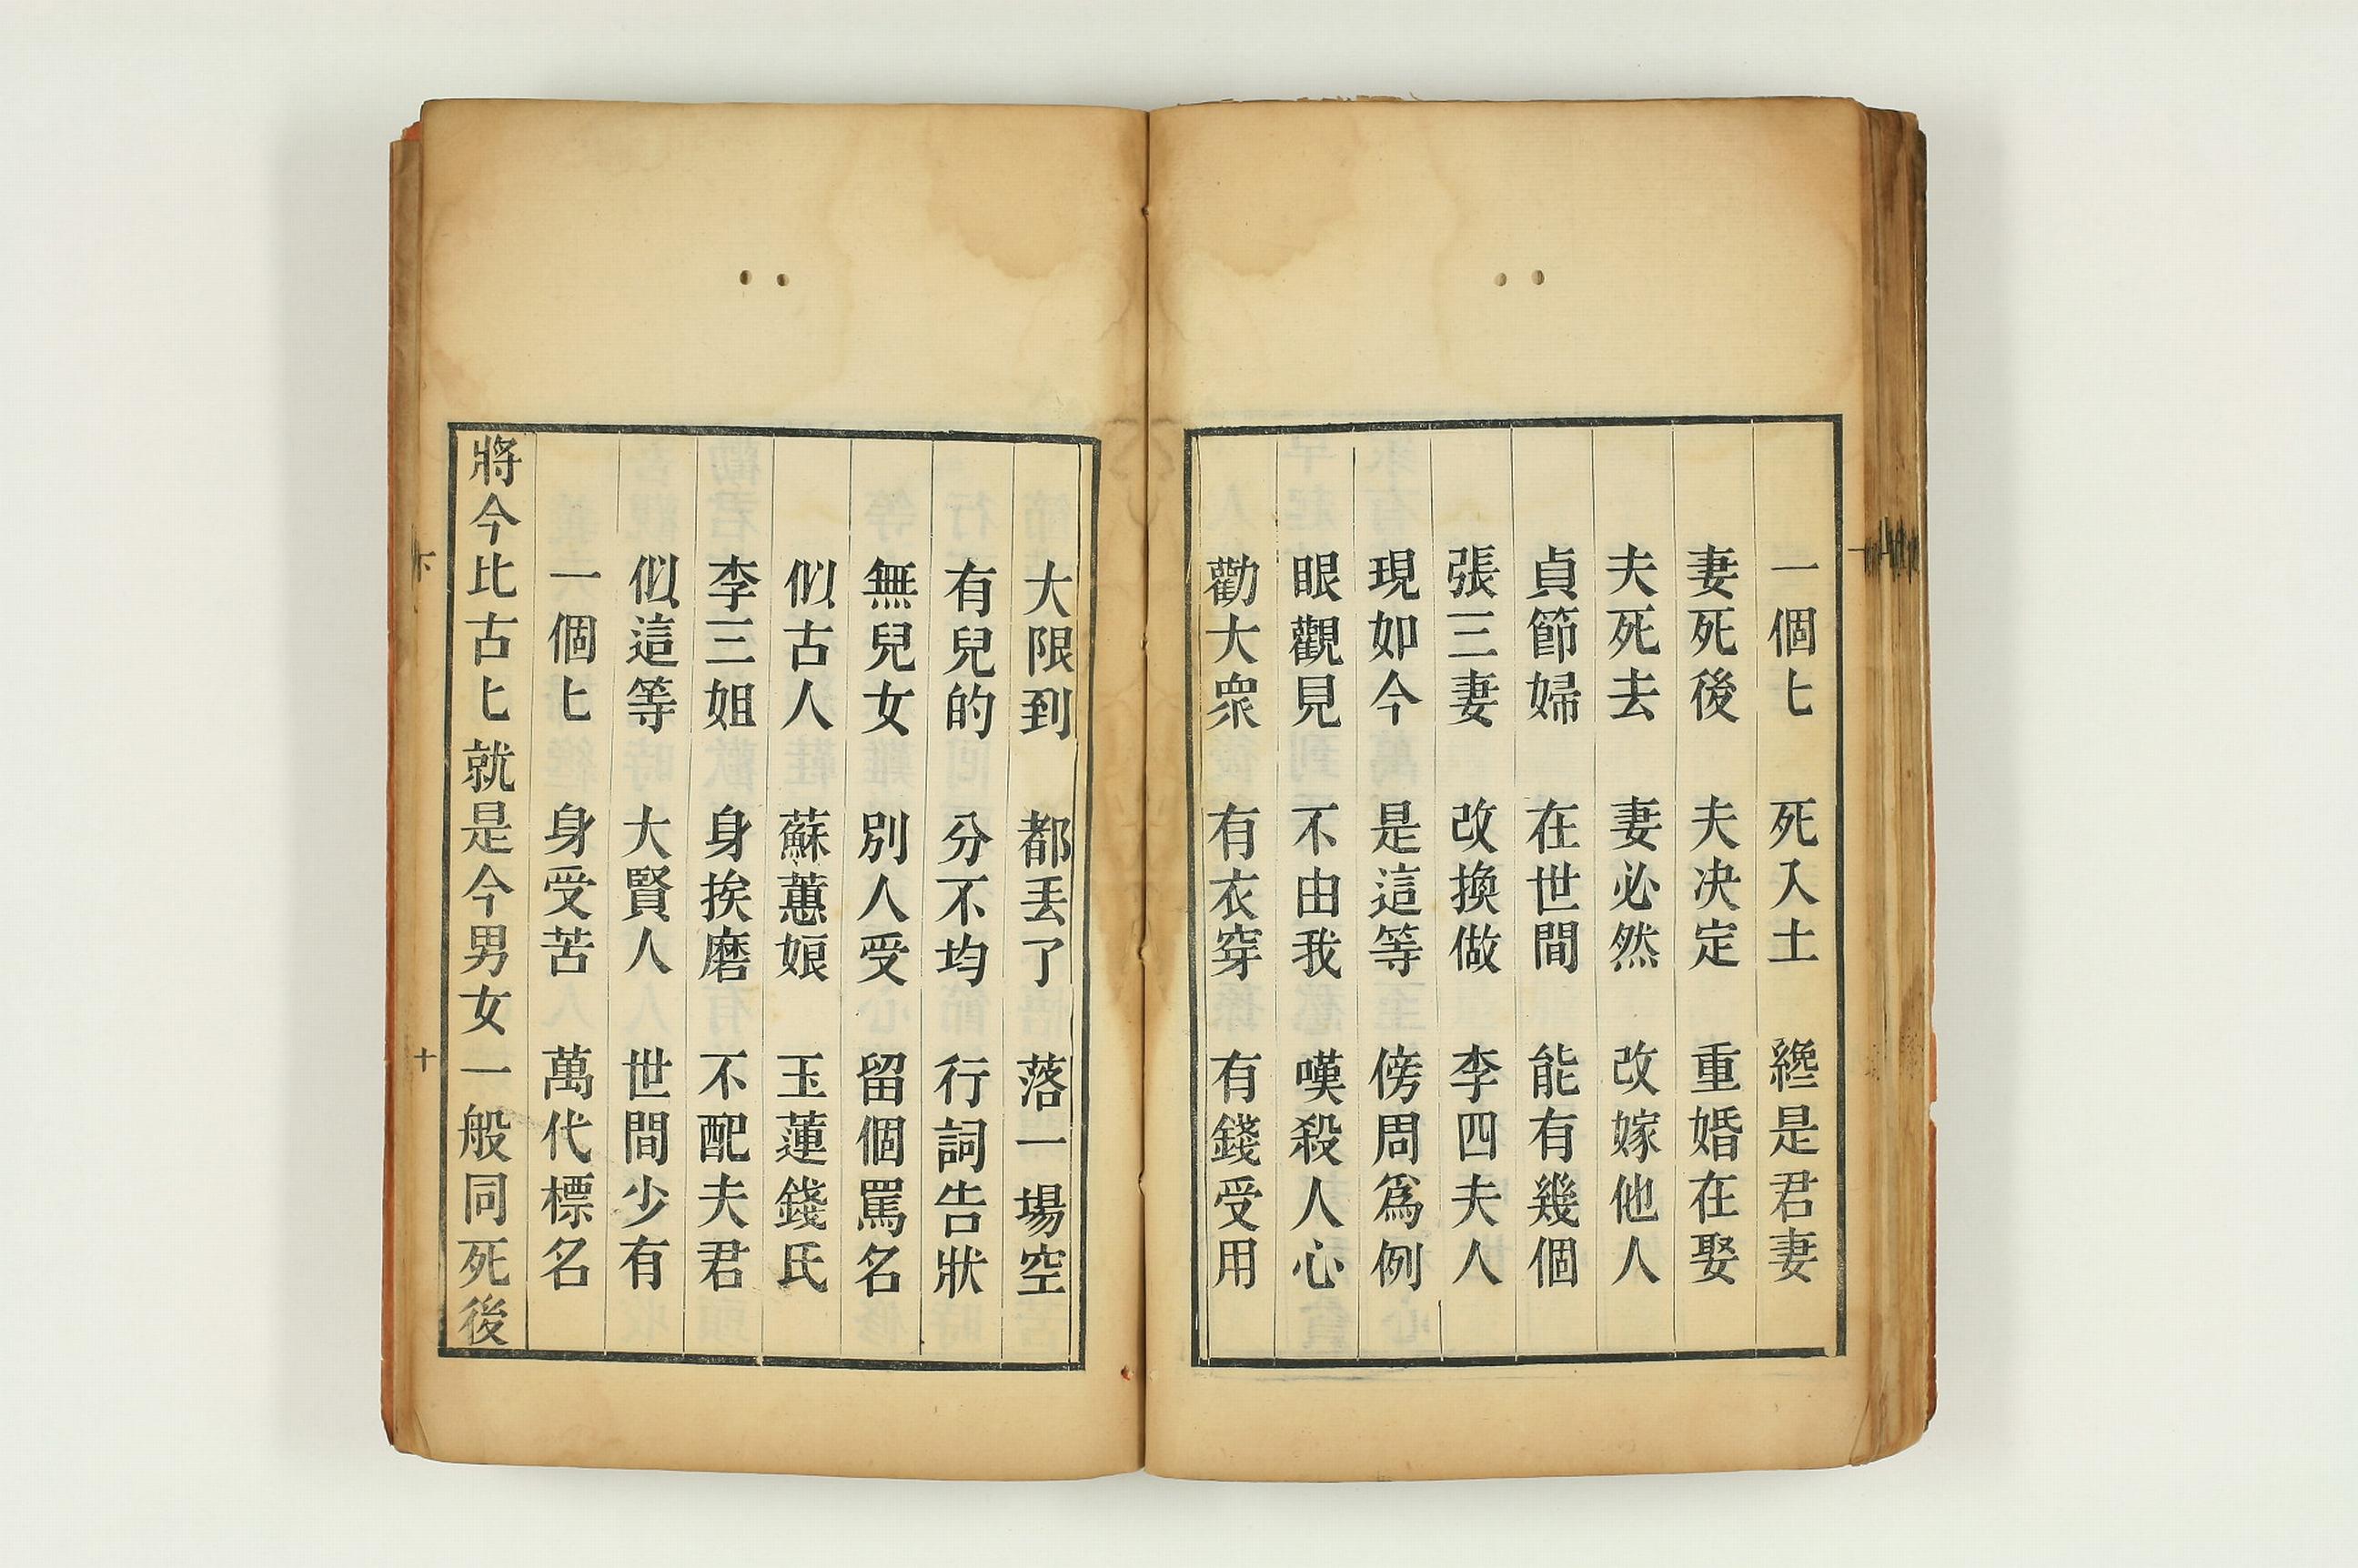 一個𠤎　死入土　纔是君妻
妻死後　夫决定　重婚在娶
夫死去　妻必然　改嫁他人
貞節婦　在世間　能有幾個
張三妻　改換做　李四夫人
現如今　是這等　傍周爲例
眼觀見　不由我　嘆殺人心
勸大衆　有衣穿　有錢受用
大限到　都丟了　落一場空
有兒的　分不均　行詞告狀
無兒女　別人受　留個罵名
似古人　蘇蕙娘　玉蓮錢氏
李三姐　身挨磨　不配夫君
似這等　大賢人　世間少有
一個𠤎　身受苦　萬代標名
將今比古𠤎就是今男女一般同死後
下　十